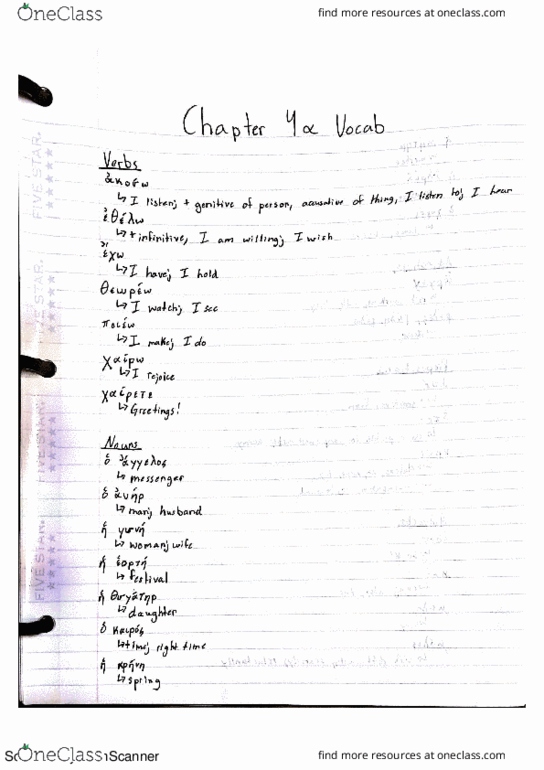 OneClass
find more resources at oneclass.com
Chapter 4α Vocab
Verbs
ἀκούω
↳ I listen; + genitive of person, accusative of thing, I listen to; I hear
ἐθέλω
↳ + infinitive, I am willing; I wish
ἔχω
↳ I have; I hold
θεωρέω
↳ I watch; I see
ποιέω
↳ I make; I do
χαίρω
↳ I rejoice
χαίρετε
↳ Greetings!
Nouns
ὁ ἄγγελος
↳ messenger
ὁ ἀνήρ
↳ man; husband
ἡ γυνή
↳ woman; wife
ἡ ἑορτή
↳ festival
ἡ θυγάτηρ
↳ daughter
ὁ καιρός
↳ time; right time
ἡ κρήνη
↳ spring
FIVE STAR.
FIVE STAR.
FIVE STAR.
OneClass
Scanner
find more resources at oneclass.com